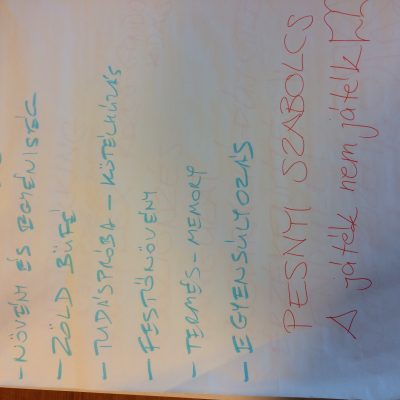 - NÖVÉNY ÉS EGYÉNISÉG
- ZÖLD BÜFÉ
- TUDÁSPRÓBA - KÖTÉLHÚZÁS
- FESTŐNÖVÉNY
- TERMÉS - MEMORY
- EGYENSÚLYOZÁS
PESNYI SZABOLCS
A játék nem játék